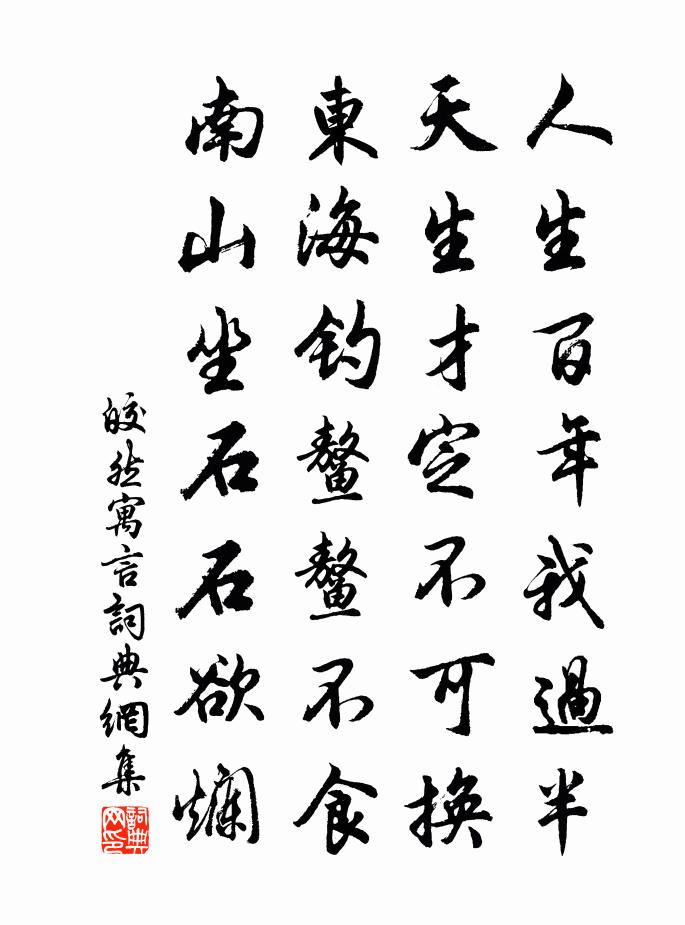 人生百年我過半
天生才定不可換
東海釣鰲鰲不食
南山坐石石欲爛
皎然寓言詞典網集
詞典
网印